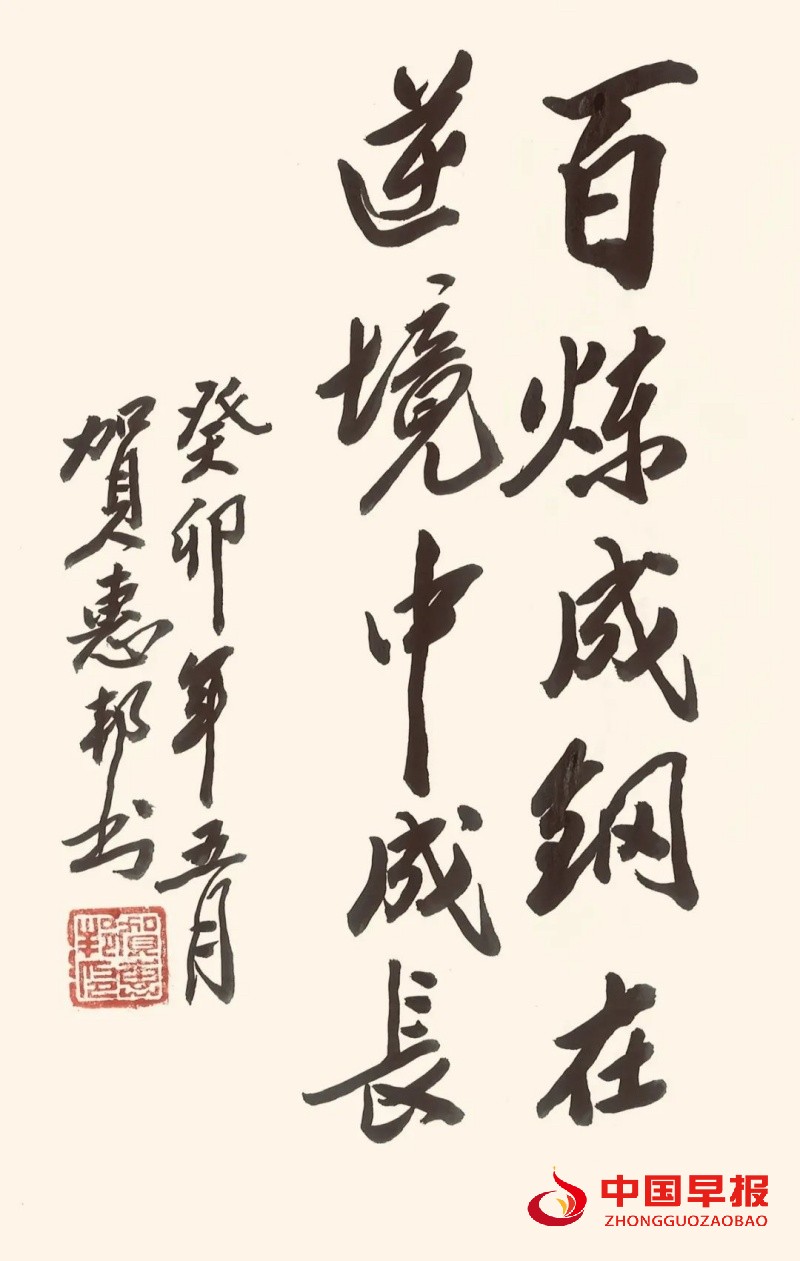 百炼成钢在
逆境中成長
癸卯年五月
賀惠邦书
賀惠邦印
中国早报
ZHONGGUOZAOBAO